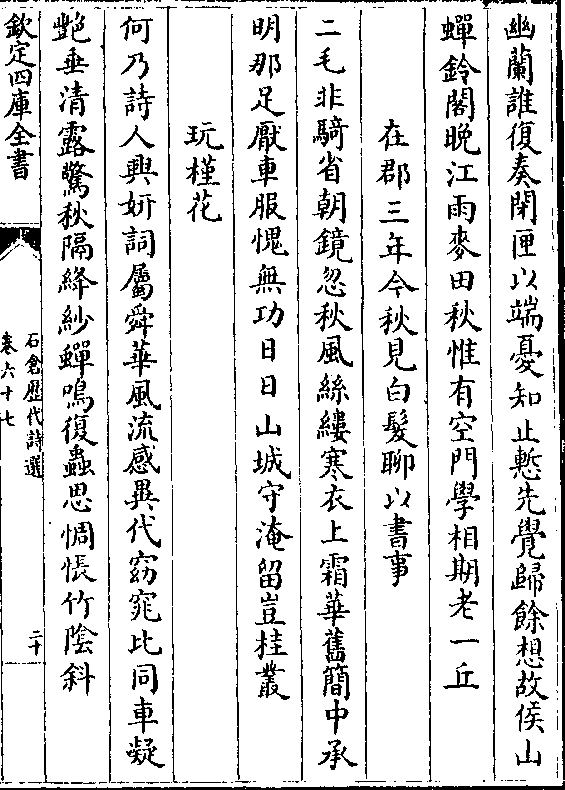 幽蘭誰復奏閉匣以端憂知止慙先覺歸餘想故侯山
蟬鈴閣晚江雨麥田秋惟有空門學相期老一丘
在郡三年今秋見白髮聊以書事
二毛非騎省朝鏡忽秋風絲縷寒衣上霜華舊簡中承
明那足厭車服愧無功日日山城守淹留豈桂叢
玩槿花
何乃詩人興妍詞屬舜華風流感異代窈窕比同車凝
艷垂清露驚秋隔絳紗蟬鳴復蟲思惆悵竹陰斜
欽定四庫全書
石倉歷代詩選
卷六十七
二十